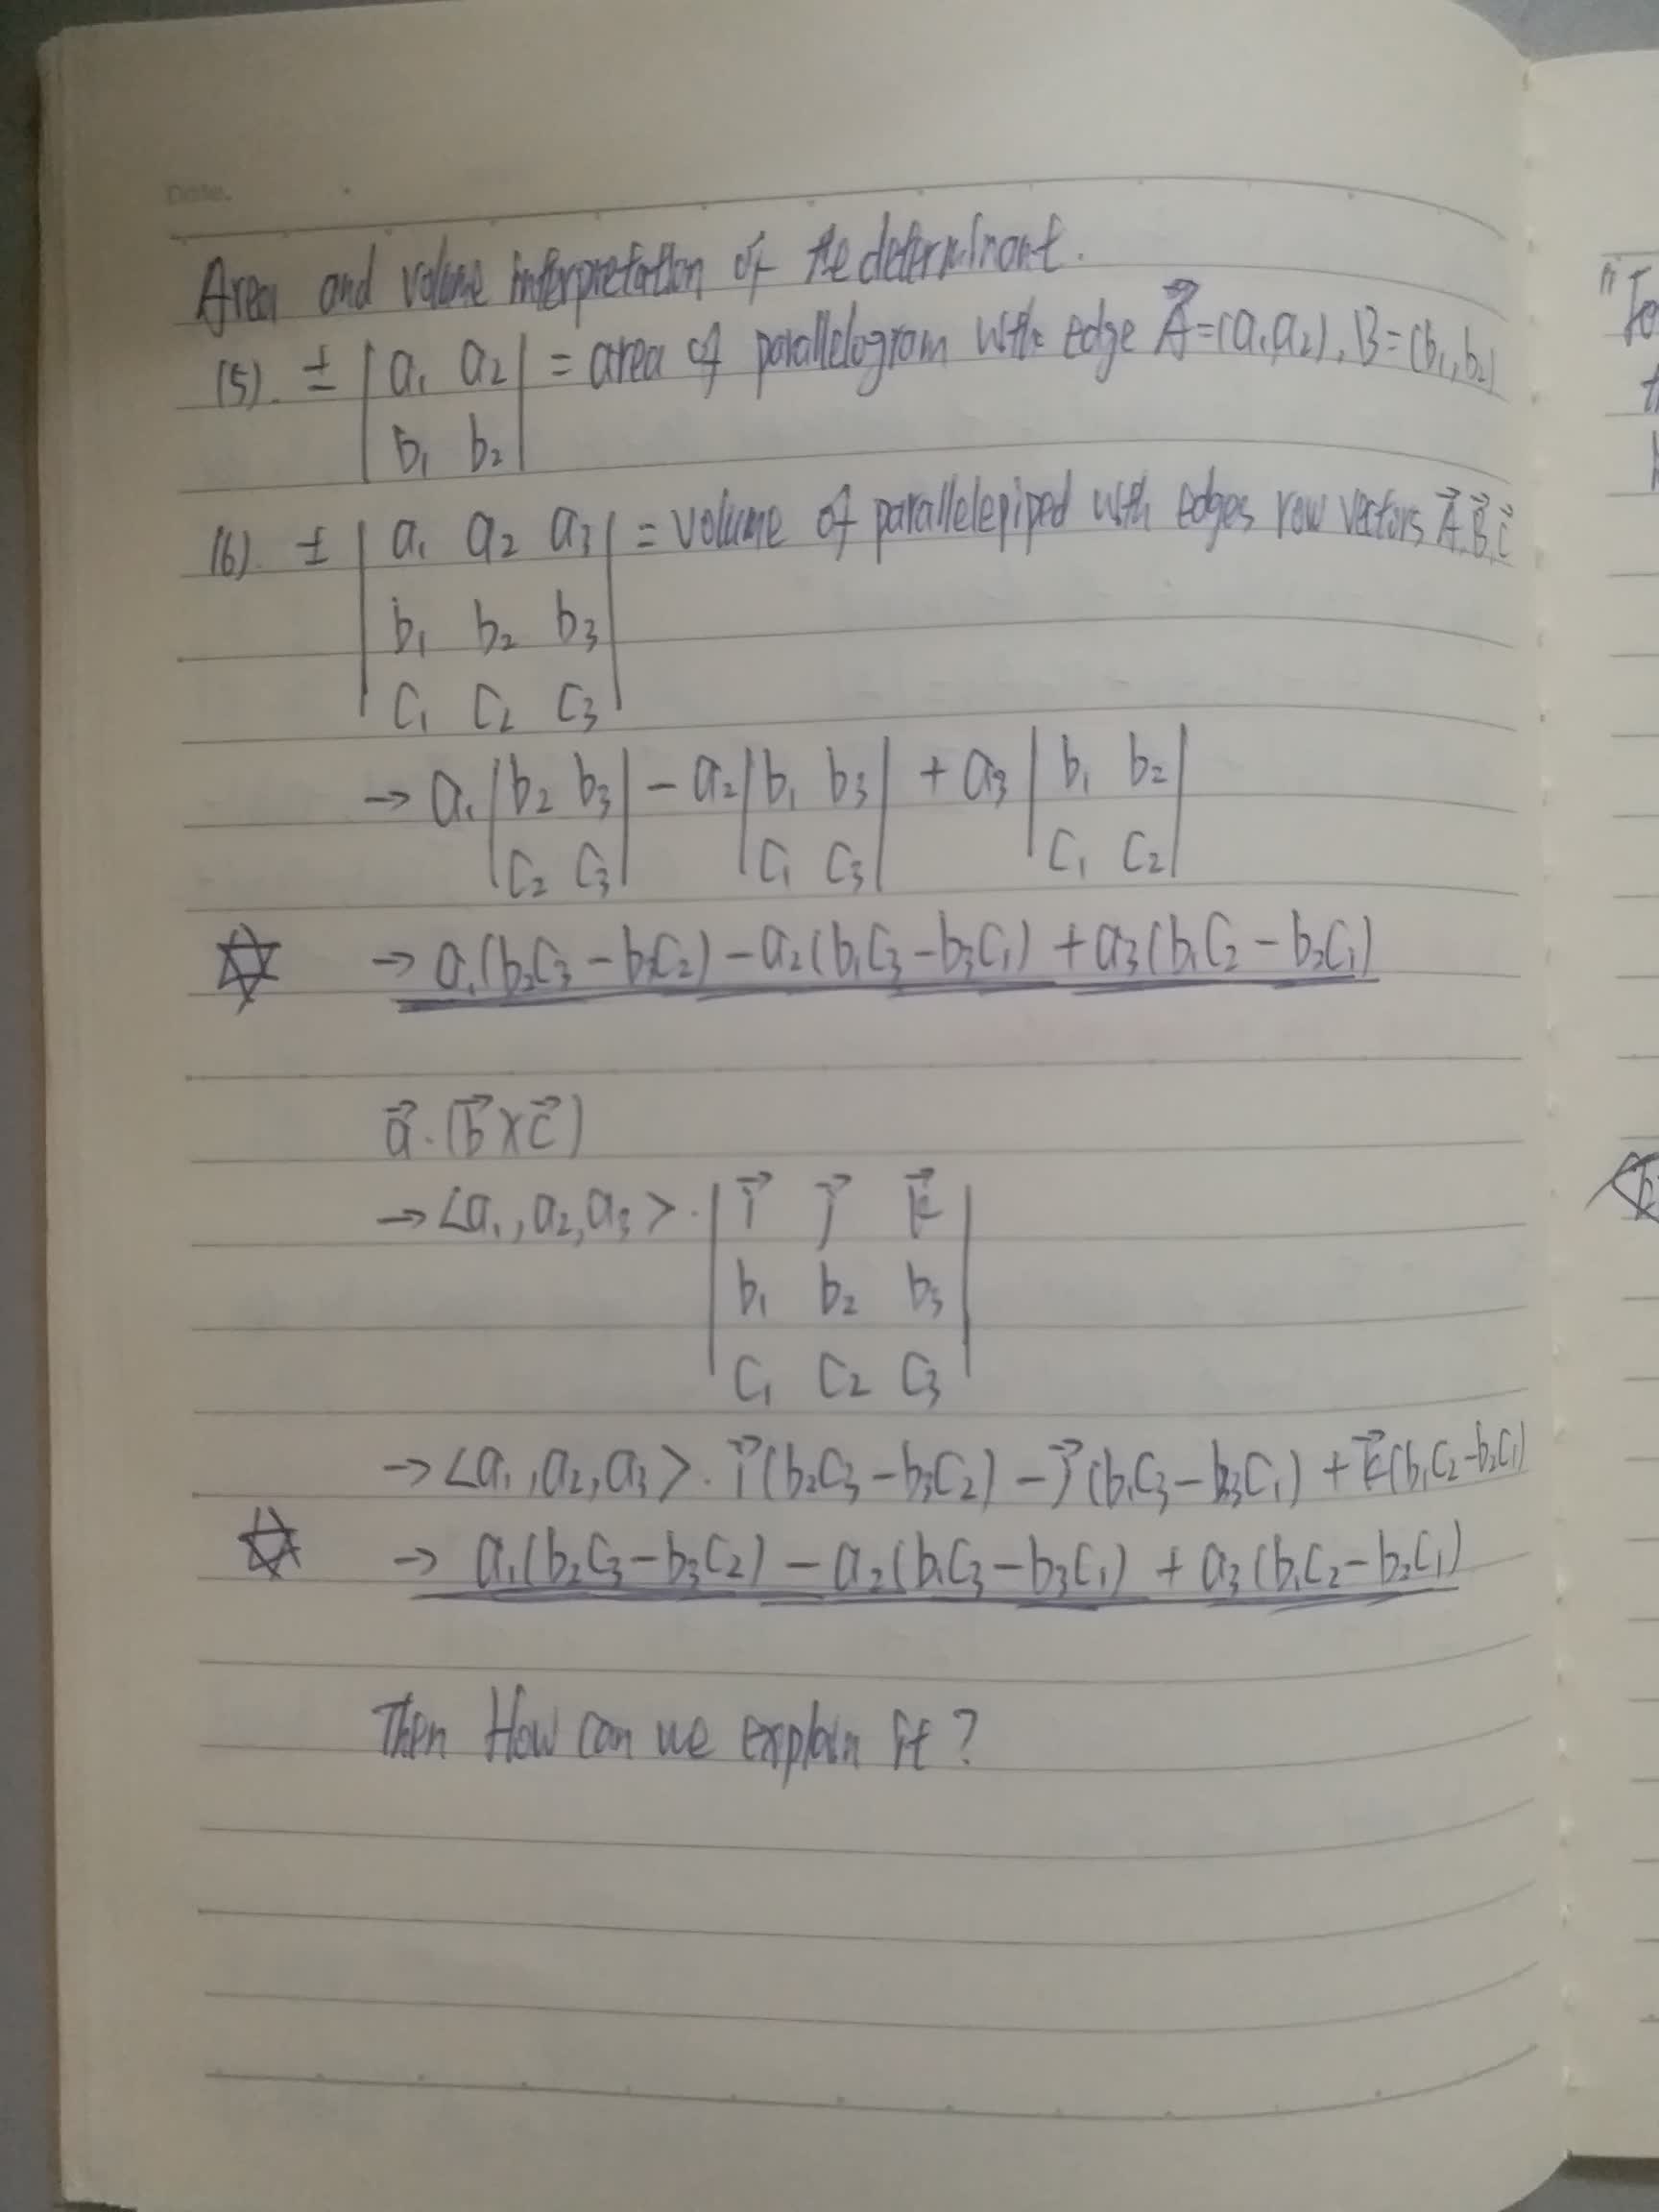 Date.
Area and volume interpretation of the determinant.
(5). ± | a₁ a₂ | = area of parallelogram with edge A⃗=(a₁a₂), B=(b₁,b₂)
| b₁ b₂ |
(6). ± | a₁ a₂ a₃ | = volume of parallelepiped with edges row vectors A⃗,B⃗,C⃗
| b₁ b₂ b₃ |
| c₁ c₂ c₃ |
→ a₁ | b₂ b₃ | − a₂ | b₁ b₃ | + a₃ | b₁ b₂ |
| c₂ c₃ | | c₁ c₃ | | c₁ c₂ |
→ a₁(b₂c₃ − b₃c₂) − a₂(b₁c₃ − b₃c₁) + a₃(b₁c₂ − b₂c₁)
a⃗ · (b⃗ × c⃗)
→ <a₁, a₂, a₃> · | i⃗ j⃗ k⃗ |
| b₁ b₂ b₃ |
| c₁ c₂ c₃ |
→ <a₁, a₂, a₃> · i⃗(b₂c₃ − b₃c₂) − j⃗(b₁c₃ − b₃c₁) + k⃗(b₁c₂ − b₂c₁)
→ a₁(b₂c₃ − b₃c₂) − a₂(b₁c₃ − b₃c₁) + a₃(b₁c₂ − b₂c₁)
Then How can we explain it?